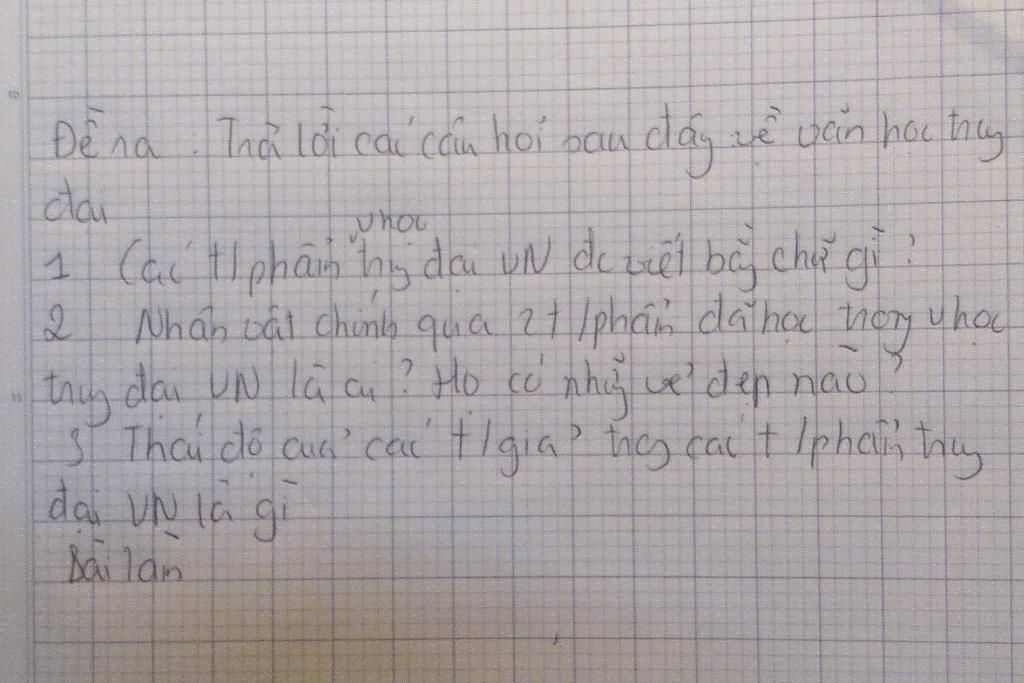 Đề na. Trả lời các câu hỏi sau đây về văn học trug
đại
vhọc
1 Các t/phẩm trug đại VN đc viết bằg chữ gì?
2 Nhân vật chính qua 2 t/phẩm đã học trog vhọc
trug đại VN là ai? Họ có nhữg vẻ đẹp nào?
3 Thái độ của các t/giả trog các t/phẩm trug
đại VN là gì
Bài làm